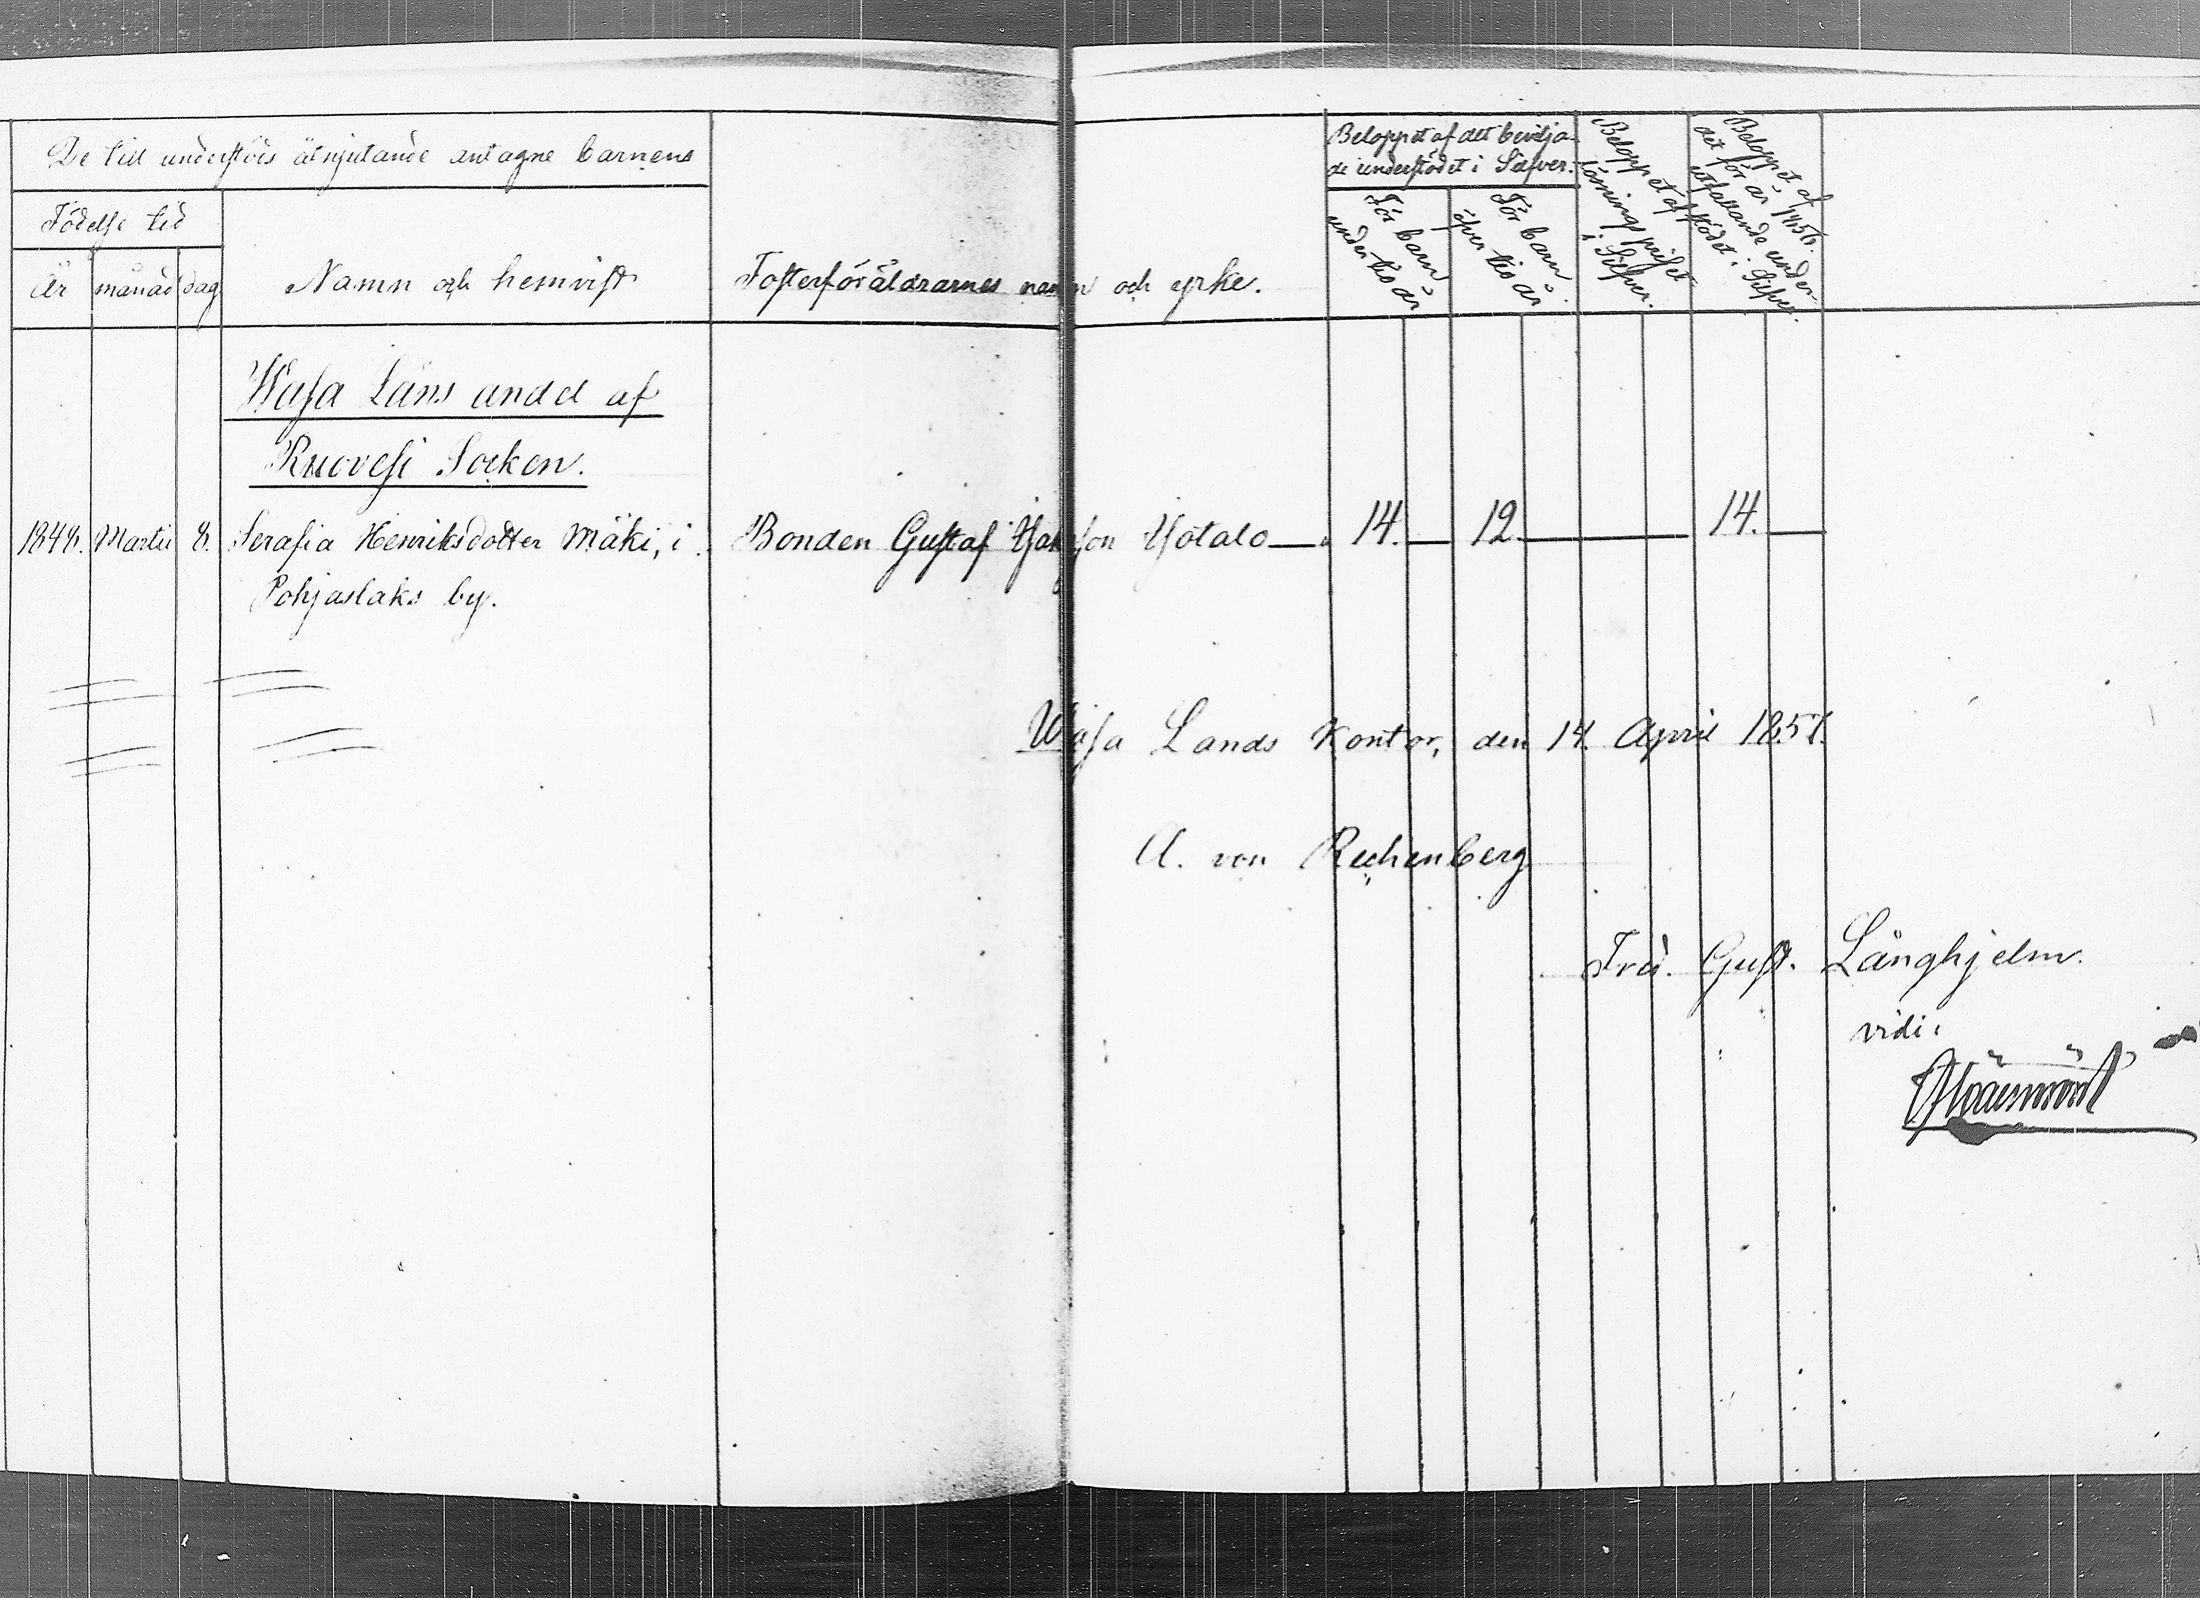 De till understöds åtnjutande antagne barnens
Födelse tid
År månad dag
Namn och hemvist
Fosterföräldrarnes namn och yrke.
Beloppet af det bevilja-
de understödet i Silfver.
För barn
under tio år
För barn
öfver tio år
Beloppet af
lösningspriset
i Silfver.
Beloppet af
det för år 1856.
utfallande under-
stödet i Silfver.
Wasa Läns andel af
Ruovesi Socken.
1848. Martii 8. Serafia Henriksdotter Mäki, i Bonden Gustaf Yötalo 14. 12. 14.
Pohjaslaks by.
Wasa Lands Kontor, den 14 April 1857.
A. von Rechenberg
Gust. Långhjelm.
vidi: